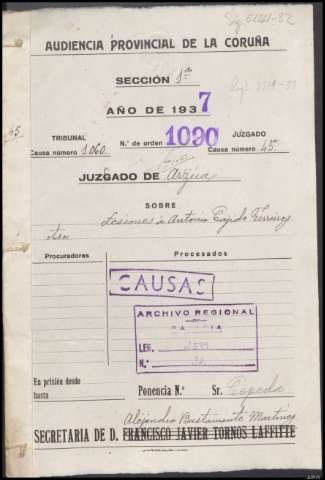 AUDIENCIA PROVINCIAL DE LA CORUÑA
SECCIÓN 1ª
AÑO DE 1937
TRIBUNAL
Causa número 1.060.
N.º de orden 1090
JUZGADO
Causa número 45.
JUZGADO DE Arzúa
SOBRE
Lesiones a Antonio
Procuradores
Procesados
CAUSAS
ARCHIVO REGIONAL
DE GALICIA
LEG.
N.º
En prisión desde
hasta
Ponencia N.º Sr. Cepeda
Alejandro Bustamante Martínez
SECRETARIA DE D. FRANCISCO JAVIER TORNOS LAFFITTE